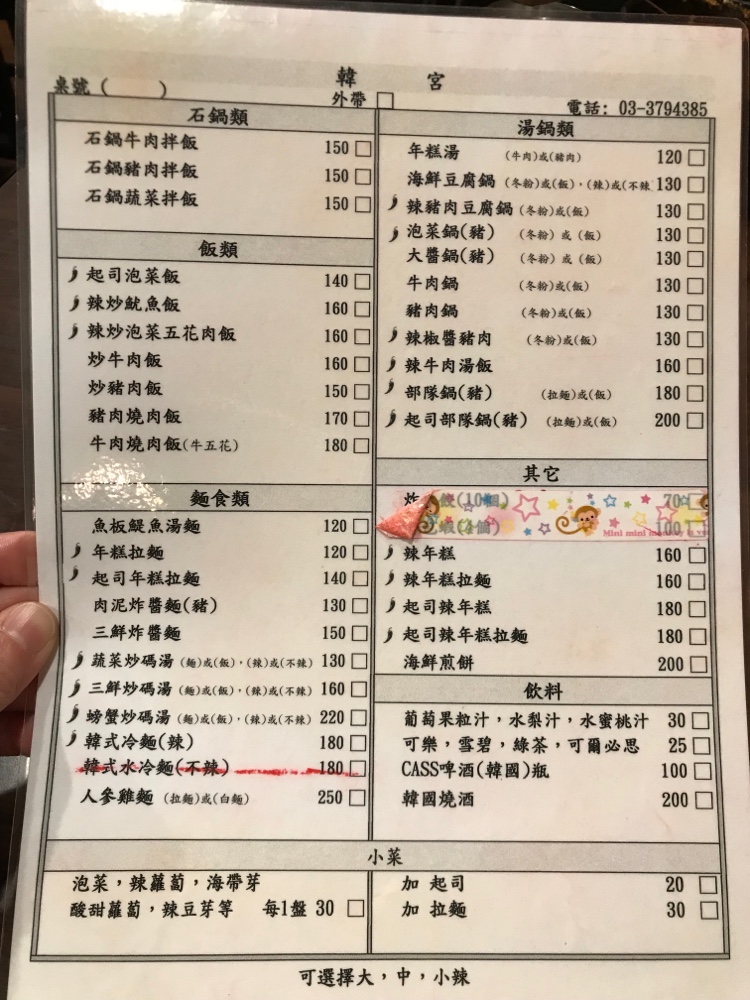 韓 宮
桌號( )
外帶
電話: 03-3794385
石鍋類
石鍋牛肉拌飯 150
石鍋豬肉拌飯 150
石鍋蔬菜拌飯 150
飯類
起司泡菜飯 140
辣炒魷魚飯 160
辣炒泡菜五花肉飯 160
炒牛肉飯 160
炒豬肉飯 150
豬肉燒肉飯 170
牛肉燒肉飯(牛五花) 180
麵食類
魚板鯷魚湯麵 120
年糕拉麵 120
起司年糕拉麵 140
肉泥炸醬麵(豬) 130
三鮮炸醬麵 150
蔬菜炒碼湯 (麵)或(飯),(辣)或(不辣) 130
三鮮炒碼湯 (麵)或(飯),(辣)或(不辣) 160
螃蟹炒碼湯 (麵)或(飯),(辣)或(不辣) 220
韓式冷麵(辣) 180
韓式水冷麵(不辣) 180
人參雞麵 (拉麵)或(白麵) 250
湯鍋類
年糕湯 (牛肉)或(豬肉) 120
海鮮豆腐鍋 (冬粉)或(飯),(辣)或(不辣 130
辣豬肉豆腐鍋 (冬粉)或(飯) 130
泡菜鍋(豬) (冬粉) 或 (飯) 130
大醬鍋(豬) (冬粉) 或 (飯) 130
牛肉鍋 (冬粉)或(飯) 130
豬肉鍋 (冬粉)或(飯) 130
辣椒醬豬肉 (冬粉)或(飯) 130
辣牛肉湯飯 160
部隊鍋(豬) (拉麵)或(飯) 180
起司部隊鍋(豬) (拉麵)或(飯) 200
其它
炸 餃(10個) 70
蝦( 個) 100
Mini mini monkey
辣年糕 160
辣年糕拉麵 160
起司辣年糕 180
起司辣年糕拉麵 180
海鮮煎餅 200
飲料
葡萄果粒汁,水梨汁,水蜜桃汁 30
可樂,雪碧,綠茶,可爾必思 25
CASS啤酒(韓國)瓶 100
韓國燒酒 200
小菜
泡菜,辣蘿蔔,海帶芽
酸甜蘿蔔,辣豆芽等 每1盤 30
加 起司 20
加 拉麵 30
可選擇大,中,小辣